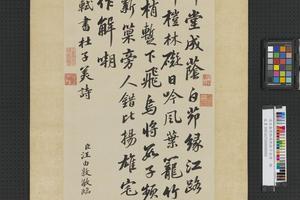 堂成蔭白茆緣江路
榿林礙日吟風葉籠竹
梢暫下飛烏將數子頻
新巢旁人錯比揚雄宅
作解嘲
軾書杜子美詩
臣汪由敦敬臨